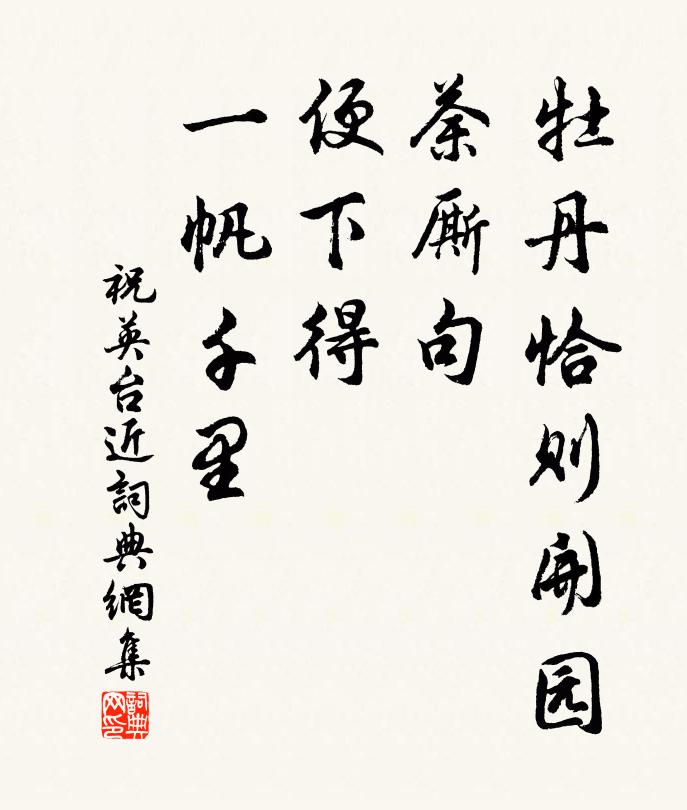 牡丹恰则開园
荼厮句
便下得
一帆千里
祝英台近詞典網集
詞典
网印